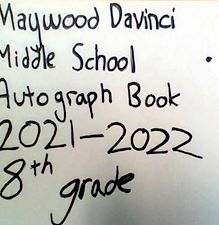 Maywood Davinci
Middle School
Autograph Book
2021-2022
8th grade